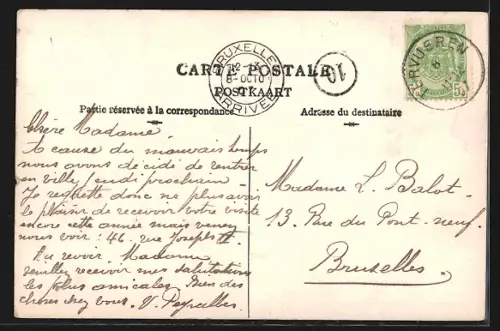 BRUXELLES
12-13
8-OCTO
ARRIVEE
CARTE POSTALE
POSTKAART
10
TERVUEREN
8
5
Partie réservée à la correspondance
Adresse du destinataire
Chère Madame
A cause du mauvais temps
nous avons décidé de rentrer
en ville jeudi prochain –
Je regrette donc ne plus avoir
le plaisir de recevoir votre visite
encore cette année mais venez
nous voir : 46. rue Joseph II.
Au revoir, Madame
veuillez recevoir mes salutations
les plus amicales. Bien des
choses chez vous. V.
Madame L. Balot.
13. Rue du Pont-neuf.
Bruxelles.